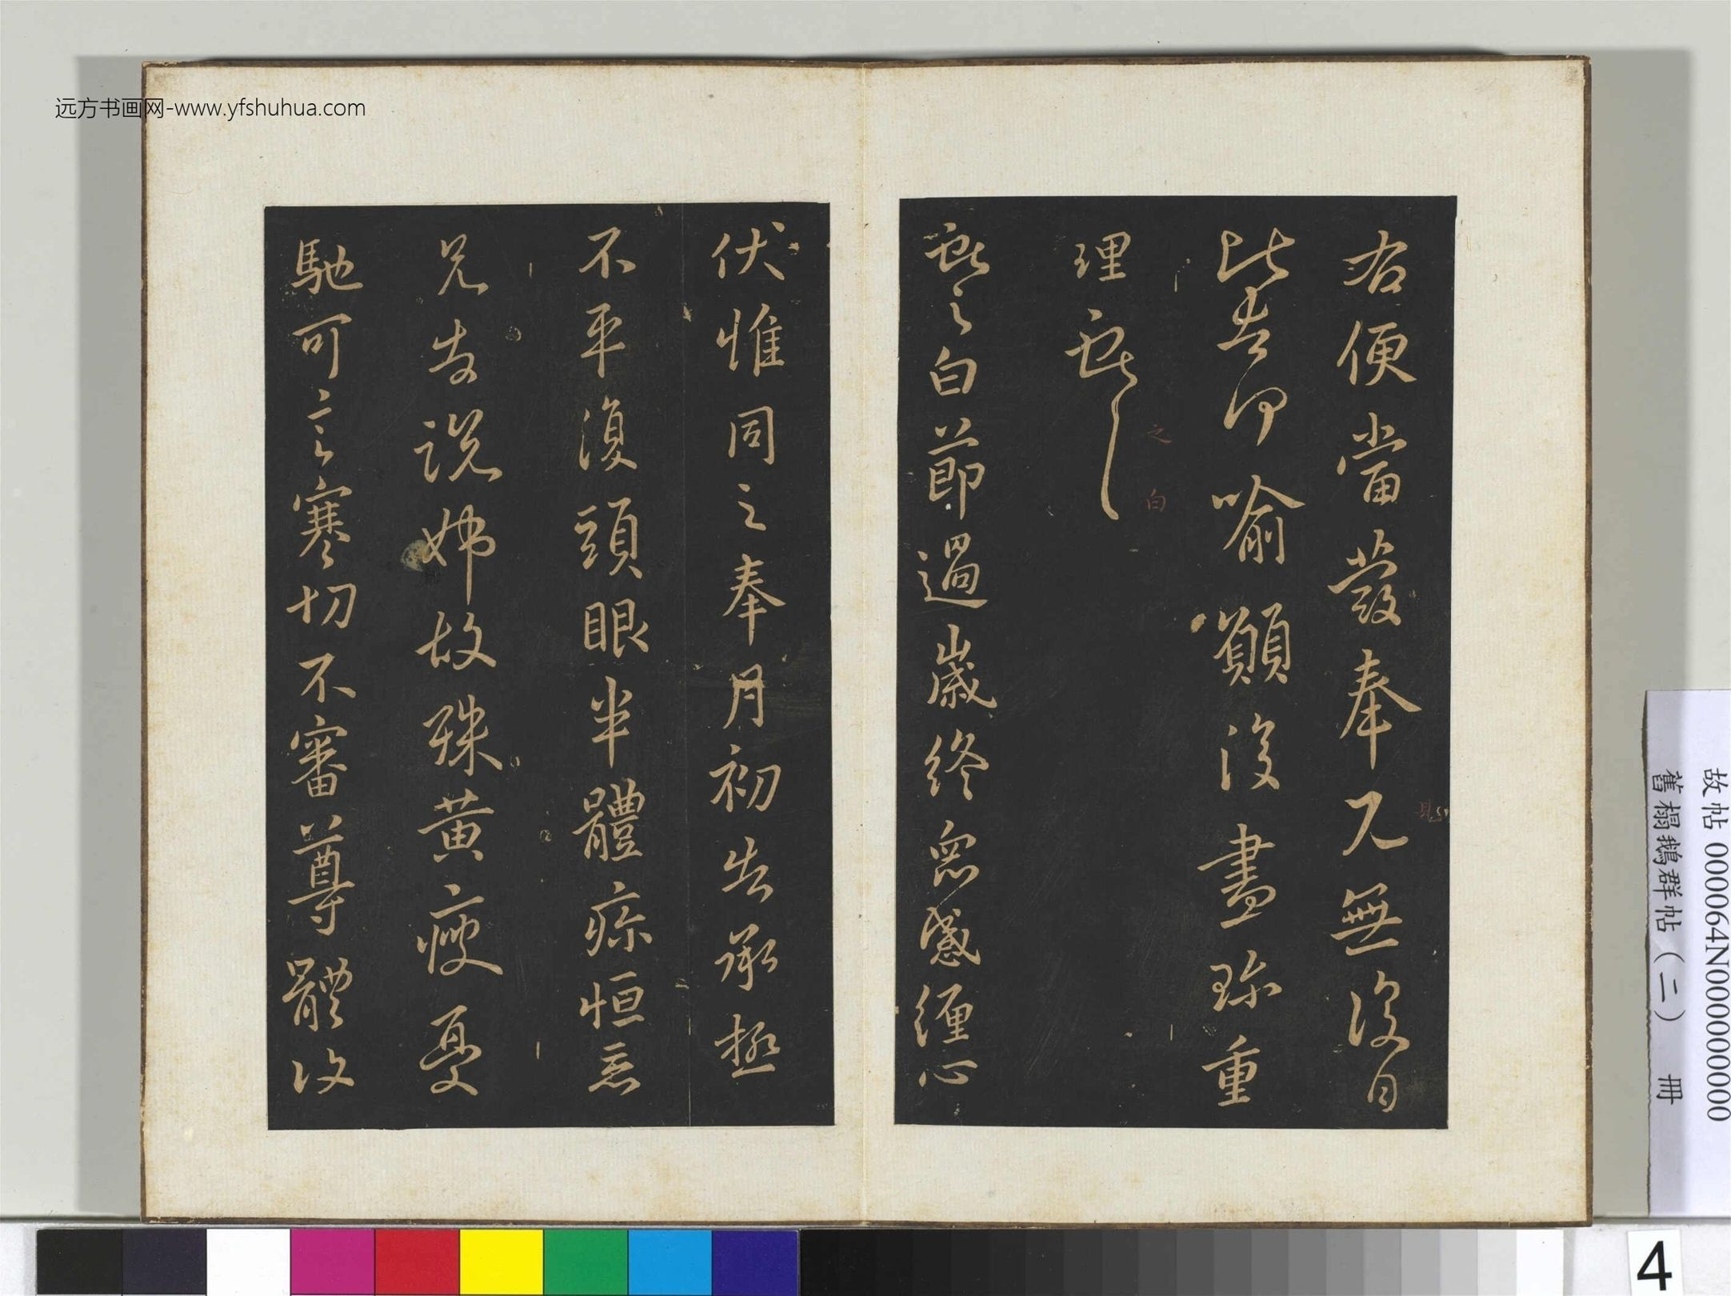 右便當發奉見無復日
比告喻願復盡珍重
理獻之
獻之白節過歲終眾感纏心
之白
伏惟同之奉月初告承極
不平復頭眼半體疼恒惡
兄告說姊故殊黃瘦憂
馳可言寒切不審尊體復
远方书画网-www.yfshuhua.com
故帖 000064N000000000
舊榻鵝群帖（二） 冊
4